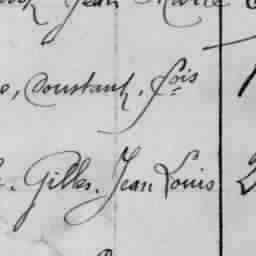 Jean Marie
e, Constant, fois
. Gilles. Jean Louis 2